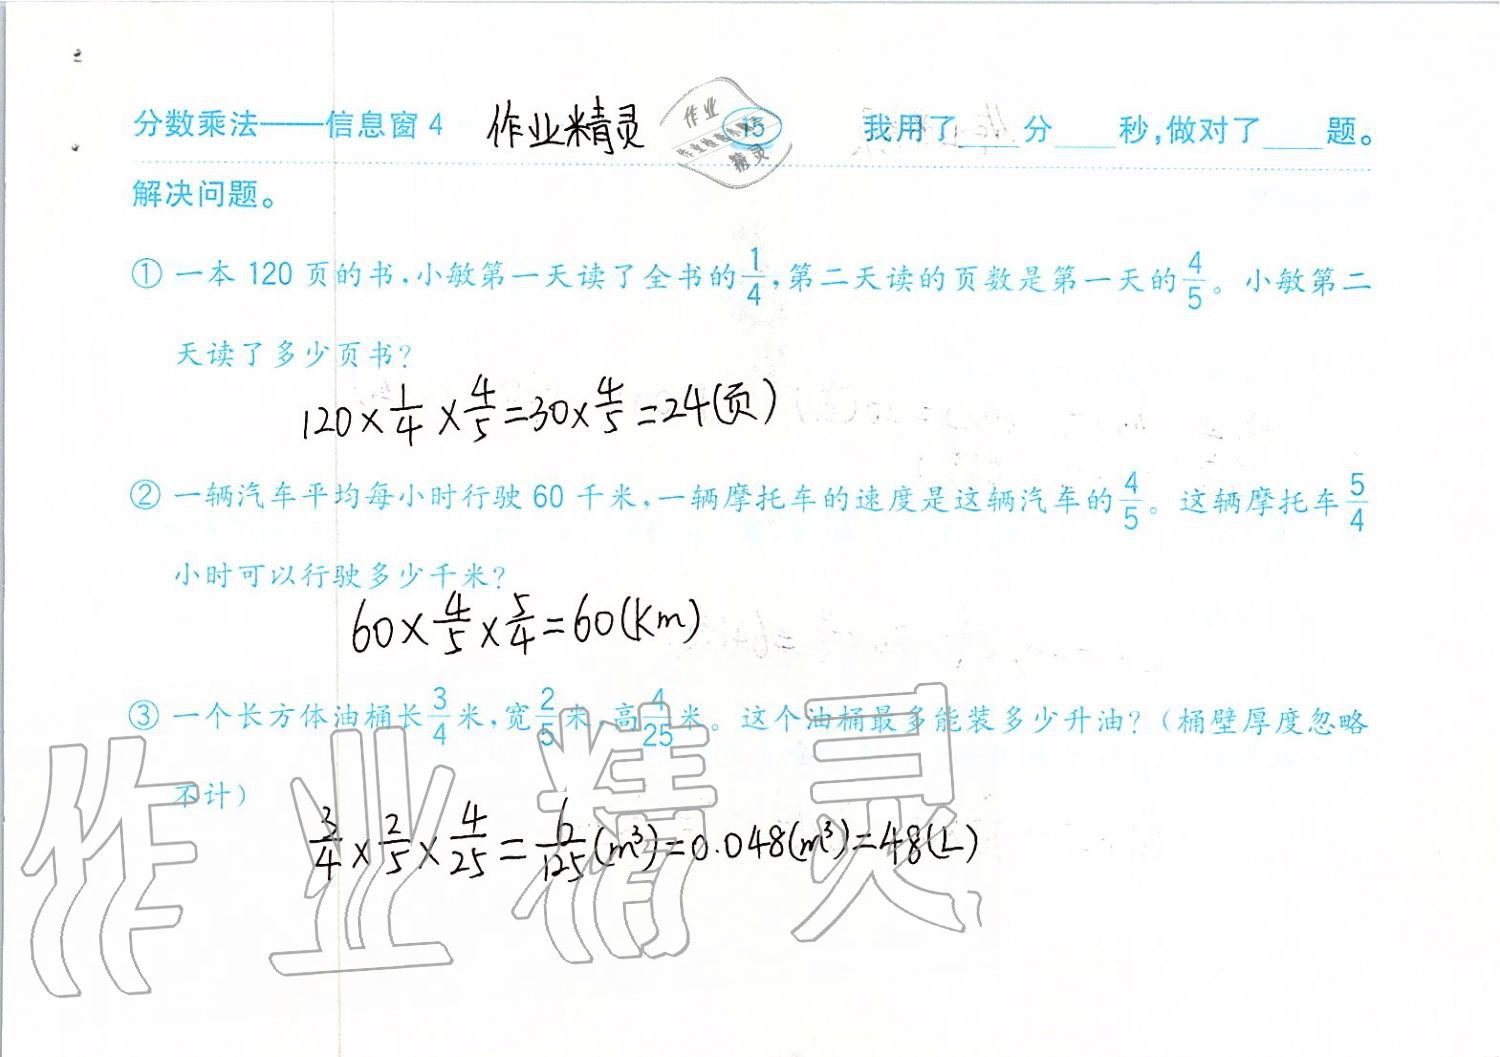 分数乘法——信息窗4 作业精灵 作业 精灵 15 我用了____分____秒,做对了____题。
解决问题。
① 一本120页的书,小敏第一天读了全书的1/4,第二天读的页数是第一天的4/5。小敏第二
天读了多少页书?
120×1/4×4/5=30×4/5=24(页)
② 一辆汽车平均每小时行驶60千米,一辆摩托车的速度是这辆汽车的4/5。这辆摩托车5/4
小时可以行驶多少千米?
60×4/5×5/4=60(km)
③ 一个长方体油桶长3/4米,宽2/5米,高4/25米。这个油桶最多能装多少升油?(桶壁厚度忽略
不计)
3/4×2/5×4/25=6/125(m³)=0.048(m³)=48(L)
作业精灵